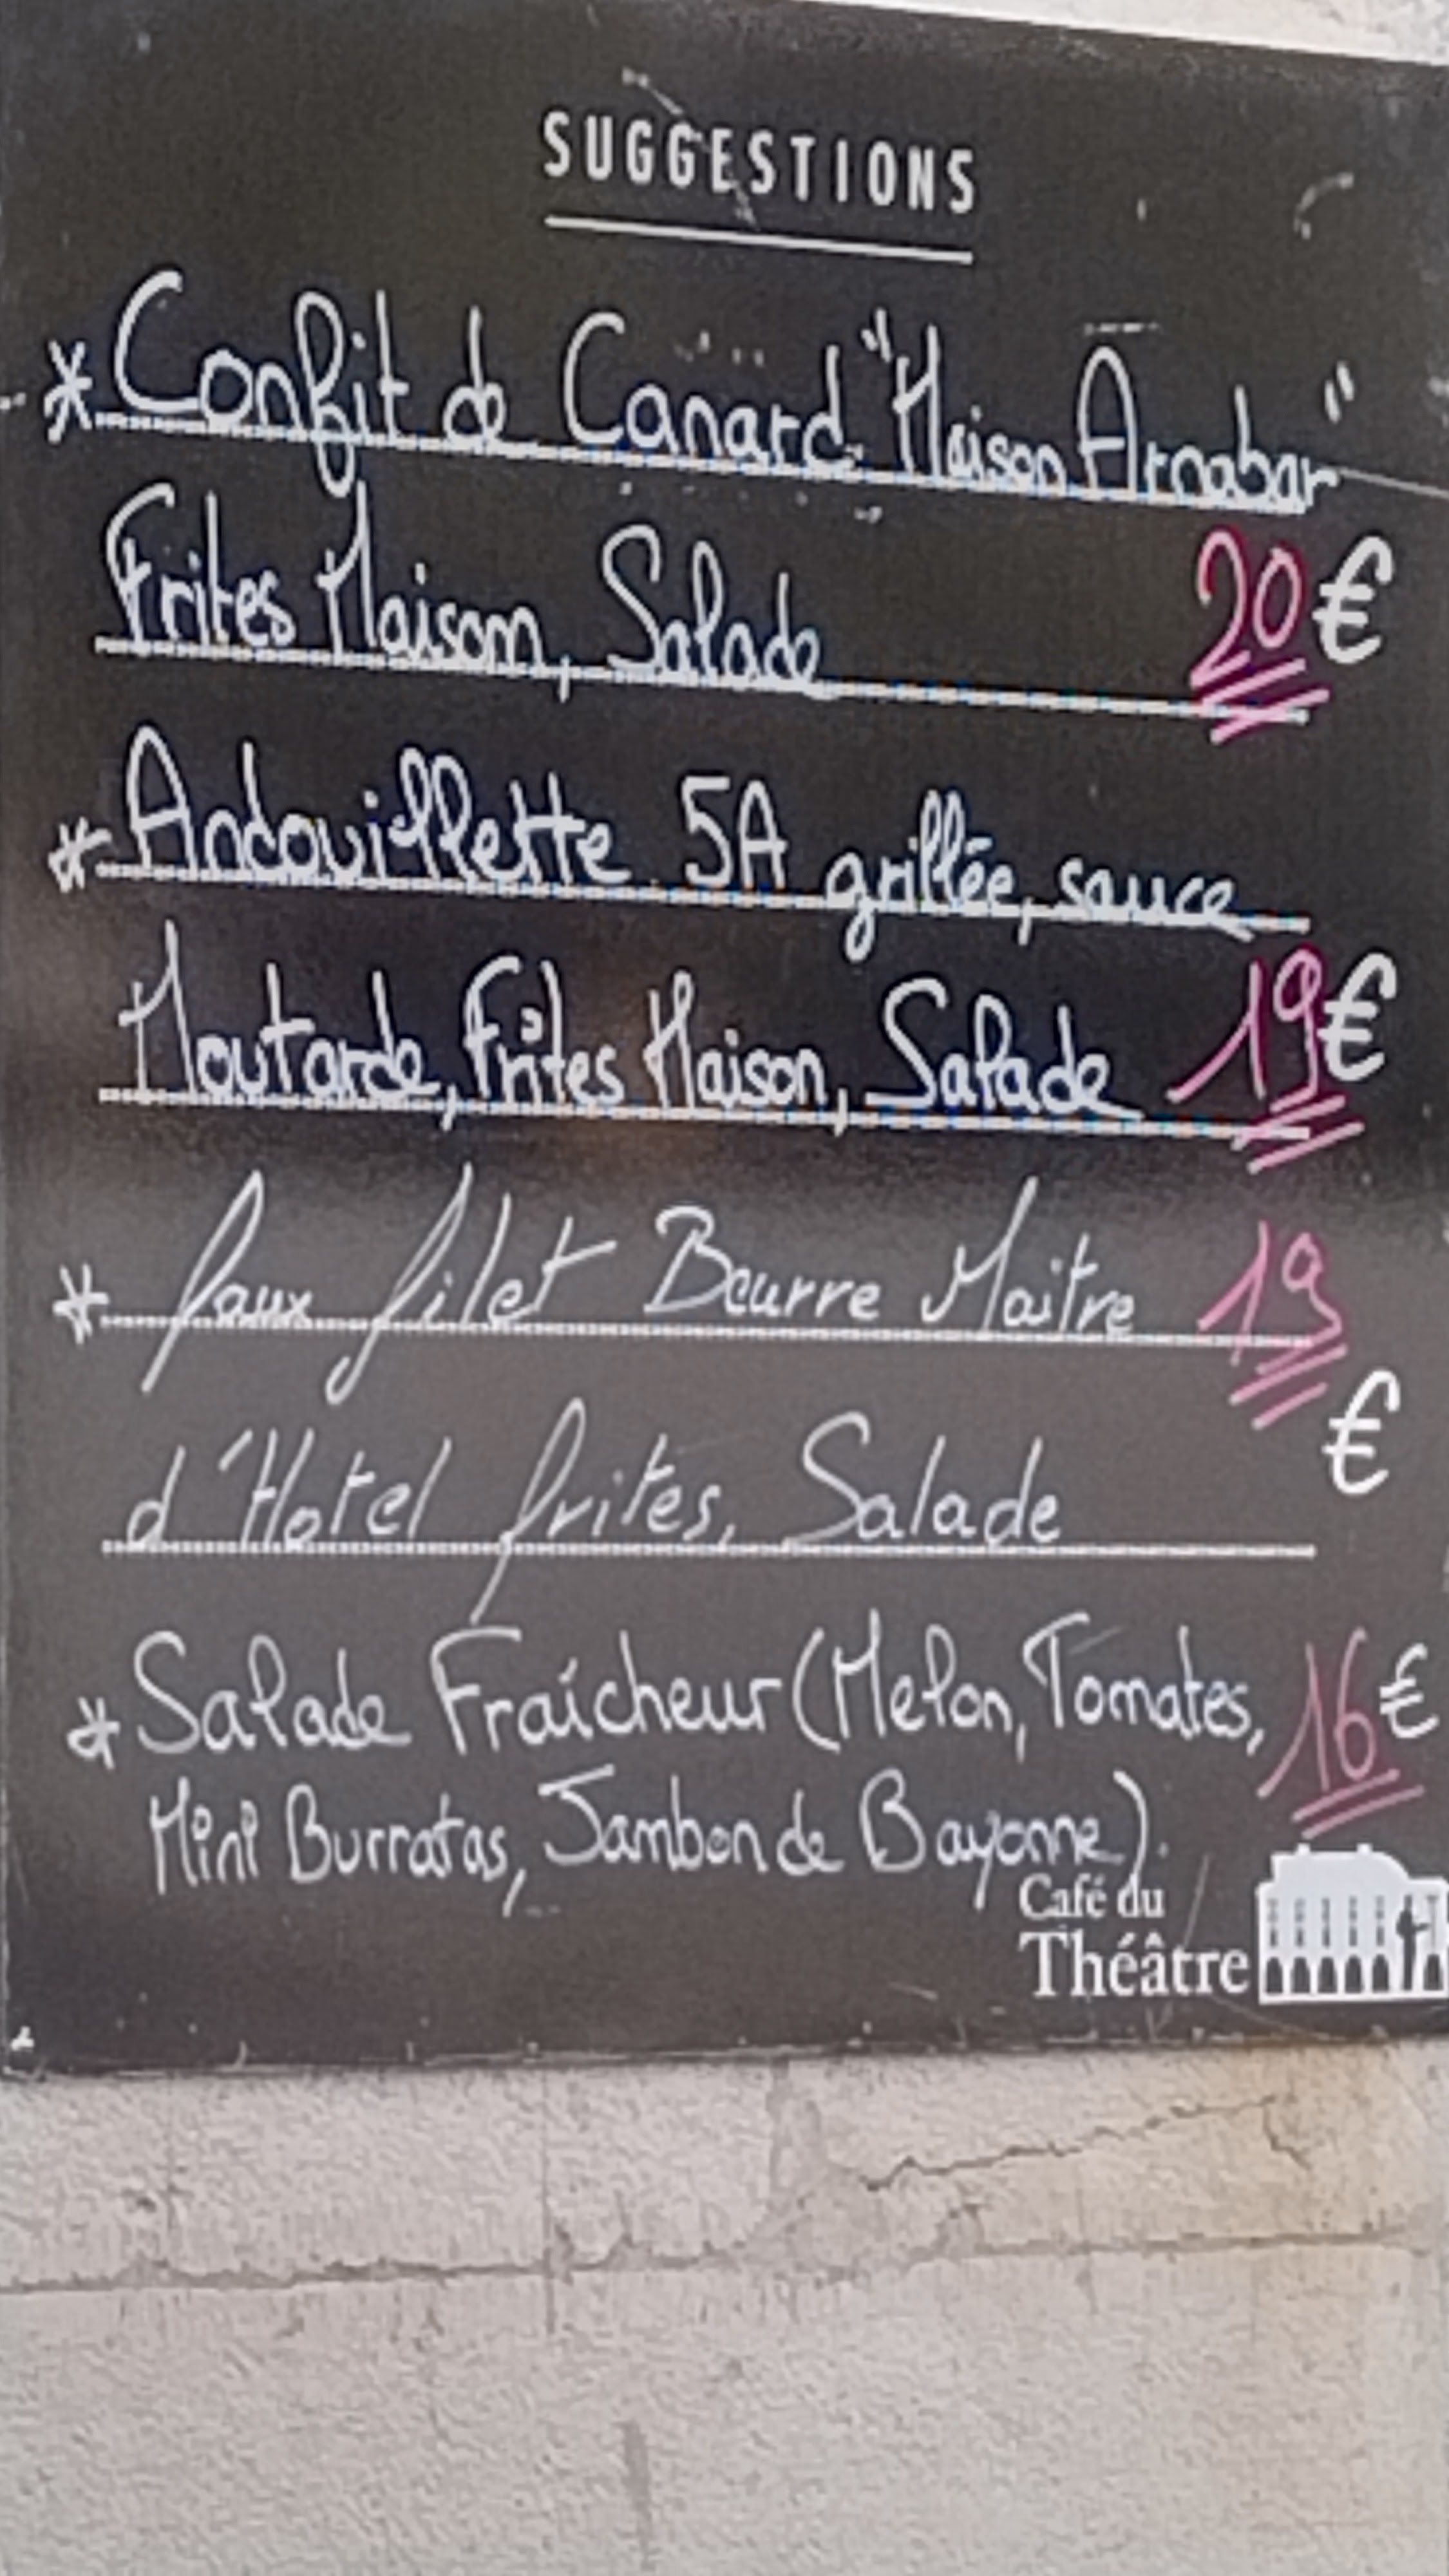 SUGGESTIONS
* Confit de Canard "Maison Arnabar"
Frites Maison, Salade 20€
* Andouillette 5A grillée, sauce
Moutarde, Frites Maison, Salade 19€
* faux filet Beurre Maitre 19
€
d'Hotel frites, Salade
* Salade Fraîcheur (Melon, Tomates, 16€
Mini Burratas, Jambon de Bayonne).
Café du
Théâtre